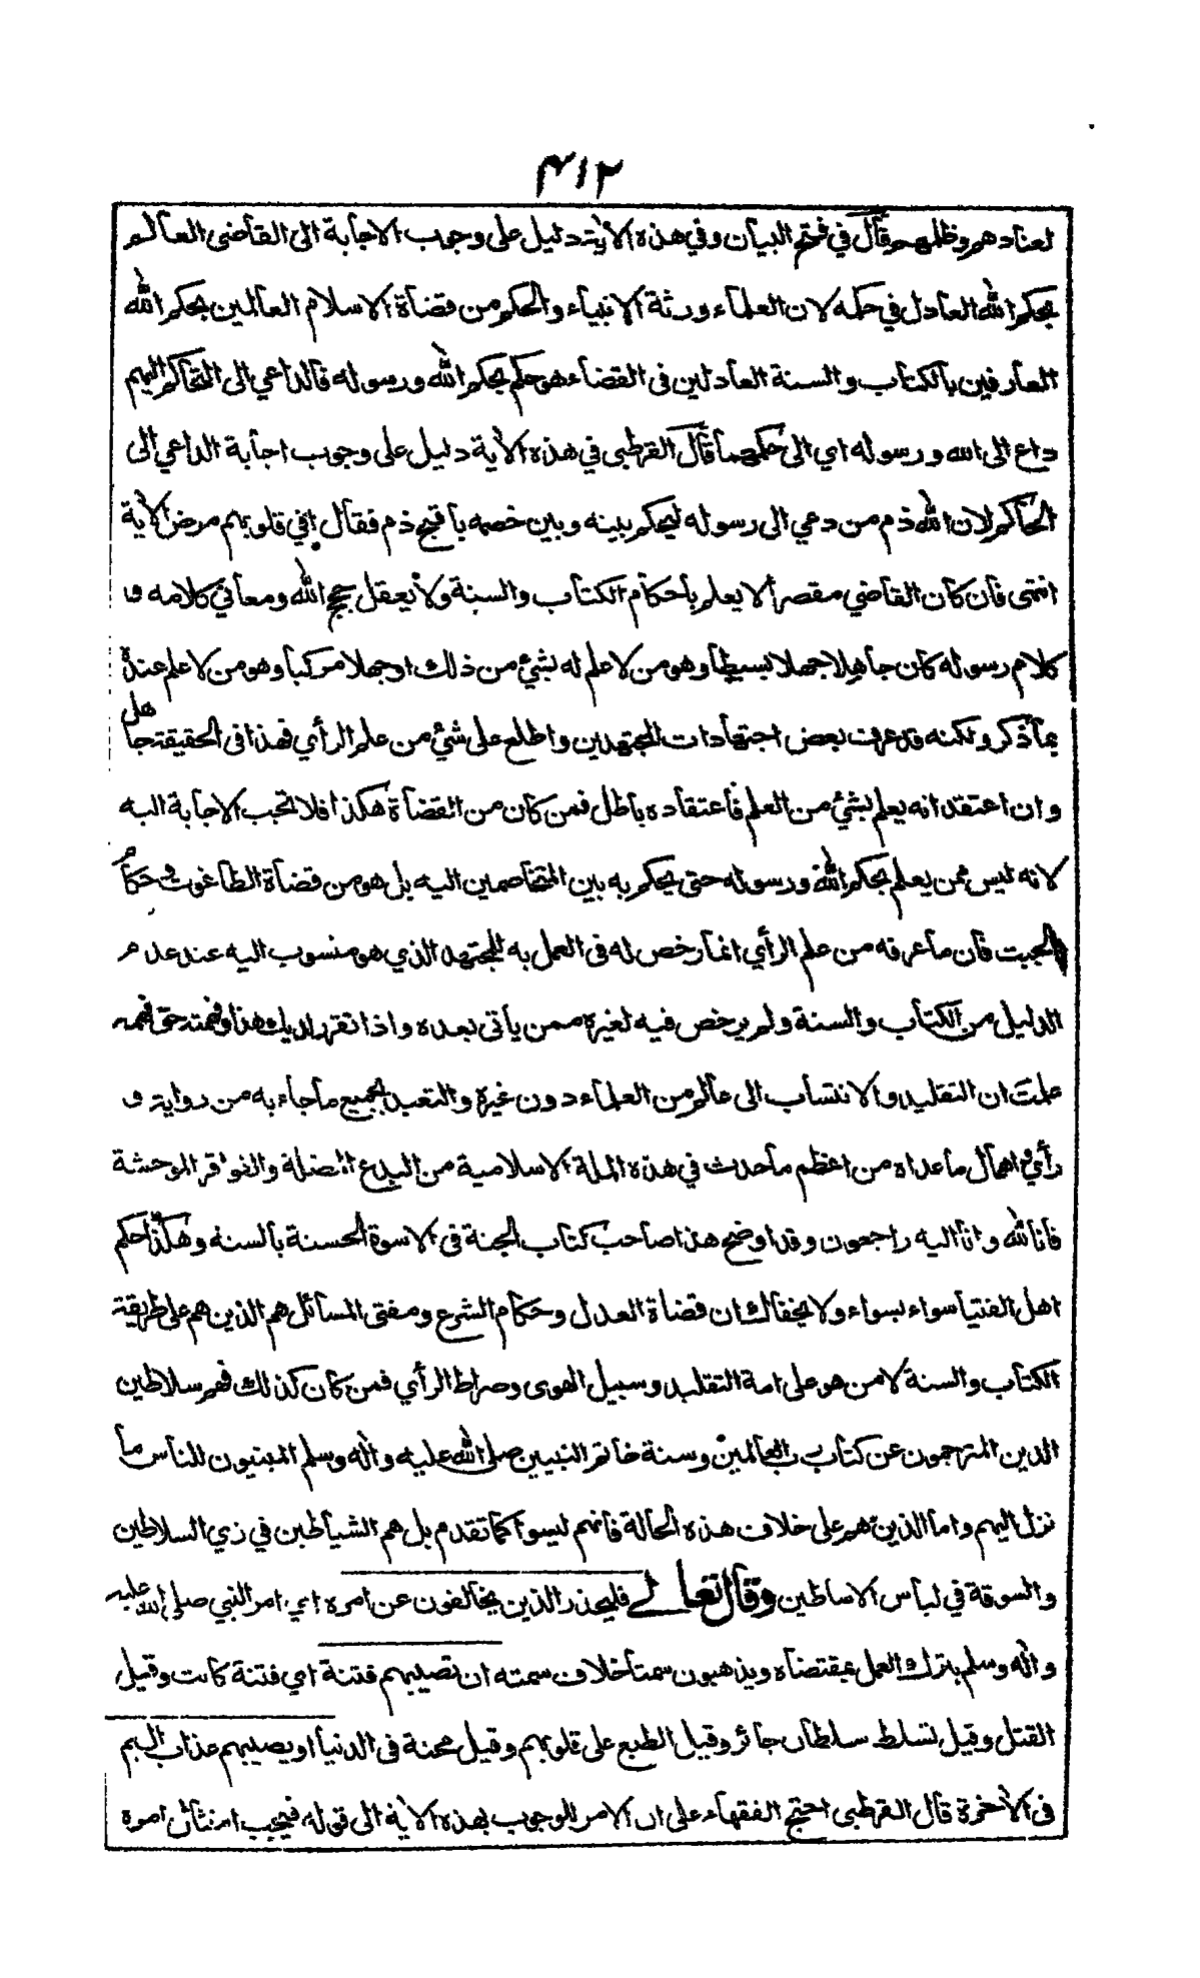 ۴۱۲
لعنادهم وظلمهم قال في فتح البيان وفي هذه الاية دليل على وجوب الاجابة الى القاضي العالم
بحكم الله العادل في حكمه لان العلماء ورثة الانبياء والحكم من قضاة الاسلام العالمين بحكم الله
العارفين بالكتاب والسنة العادلين فى القضاء هو حكم بحكم الله ورسوله فالداعي الى التحاكم اليهم
داع الى الله ورسوله اي الى حكمهما قال القرطبى في هذه الاية دليل على وجوب اجابة الداعي الى
الحاكم لان الله ذم من دعي الى رسوله ليحكم بينه وبين خصمه باقبح ذم فقال افي قلوبهم مرض الاية
انتهى فان كان القاضي مقصرا لا يعلم باحكام الكتاب والسنة ولا يعقل حجج الله ومعاني كلامه و
كلام رسوله كان جاهلا جهلا بسيطا وهو من لا علم له بشئ من ذلك او جهلا مركبا وهو من لا علم عنده
بما ذكر ولكنه قد عرف بعض اجتهادات المجتهدين واطلع على شئ من علم الرأي فهذا فى الحقيقة جاهل
وان اعتقد انه يعلم بشئ من العلم فاعتقاده باطل فمن كان من القضاة هكذا فلا تجب الاجابة اليه
لانه ليس ممن يعلم بحكم الله ورسوله حتى يحكم به بين المتخاصمين اليه بل هو من قضاة الطاغوت وحكام
الجبت فان ما عرفه من علم الرأي انما رخص له فى العمل به للمجتهد الذي هو منسوب اليه عند عدم
الدليل من الكتاب والسنة ولم يرخص فيه لغيره ممن يأتى بعده واذا تقرر لديك هذا وفهمته حق فهمه
علمت ان التقليد والانتساب الى عالم من العلماء دون غيره والتعبد بجميع ما جاء به من رواية و
رأي واهمال ما عداه من اعظم ما حدث في هذه الملة الاسلامية من البدع المضلة والفواقر الموحشة
فانا لله وانا اليه راجعون وقد اوضح هذا صاحب كتاب الجنة فى الاسوة الحسنة بالسنة وهكذا حكم
اهل الفتيا سواء بسواء ولا يخفاك ان قضاة العدل وحكام الشرع ومفتى المسائل هم الذين هم على طريقة
الكتاب والسنة لا من هو على امة التقليد وسبيل الهوى وصراط الرأي فمن كان كذلك فهم سلاطين
الدين المترجمون عن كتاب رب العالمين وسنة خاتم النبيين صلى الله عليه واله وسلم المبينون للناس ما
نزل اليهم واما الذين هم على خلاف هذه الحالة فانهم ليسوا كما تقدم بل هم الشياطين في زي السلاطين
والسوقة في لباس الاساطين وقال تعالے فليحذر الذين يخالفون عن امره اي امر النبي صلى الله عليه
واله وسلم بترك العمل بمقتضاه ويذهبون سمتا خلاف سمته ان تصيبهم فتنة اي فتنة كانت وقيل
القتل وقيل تسلط سلطان جائر وقيل الطبع على قلوبهم وقيل محنة فى الدنيا او يصيبهم عذاب اليم
فى الاخرة قال القرطبى احتج الفقهاء على ان الامر للوجوب بهذه الاية الى قوله فيجب امتثال امره